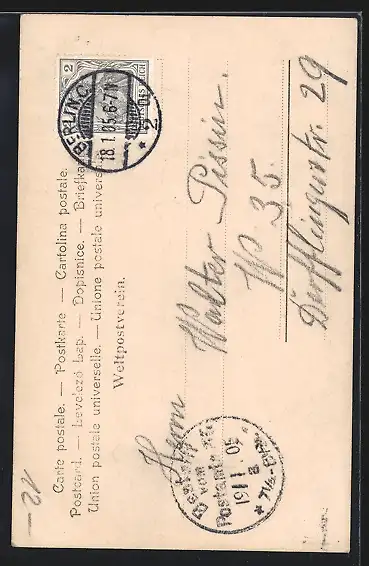 Carte postale. — Postkarte — Cartolina postale.
Postcard. — Levelező Lap. — Dopisnice. — Briefkaart
Union postale universelle. — Unione postale universale
Weltpostverein.
2
DEUTSCHES REICH
BERLIN, C.
18.1.05.6-7N.
* 2
Herrn
Walter Pissin.
W 35
Dörfflingerstr. 29
Bestellt
vom
Postamte
19/1.05
* 7¼-8¼V. *
12